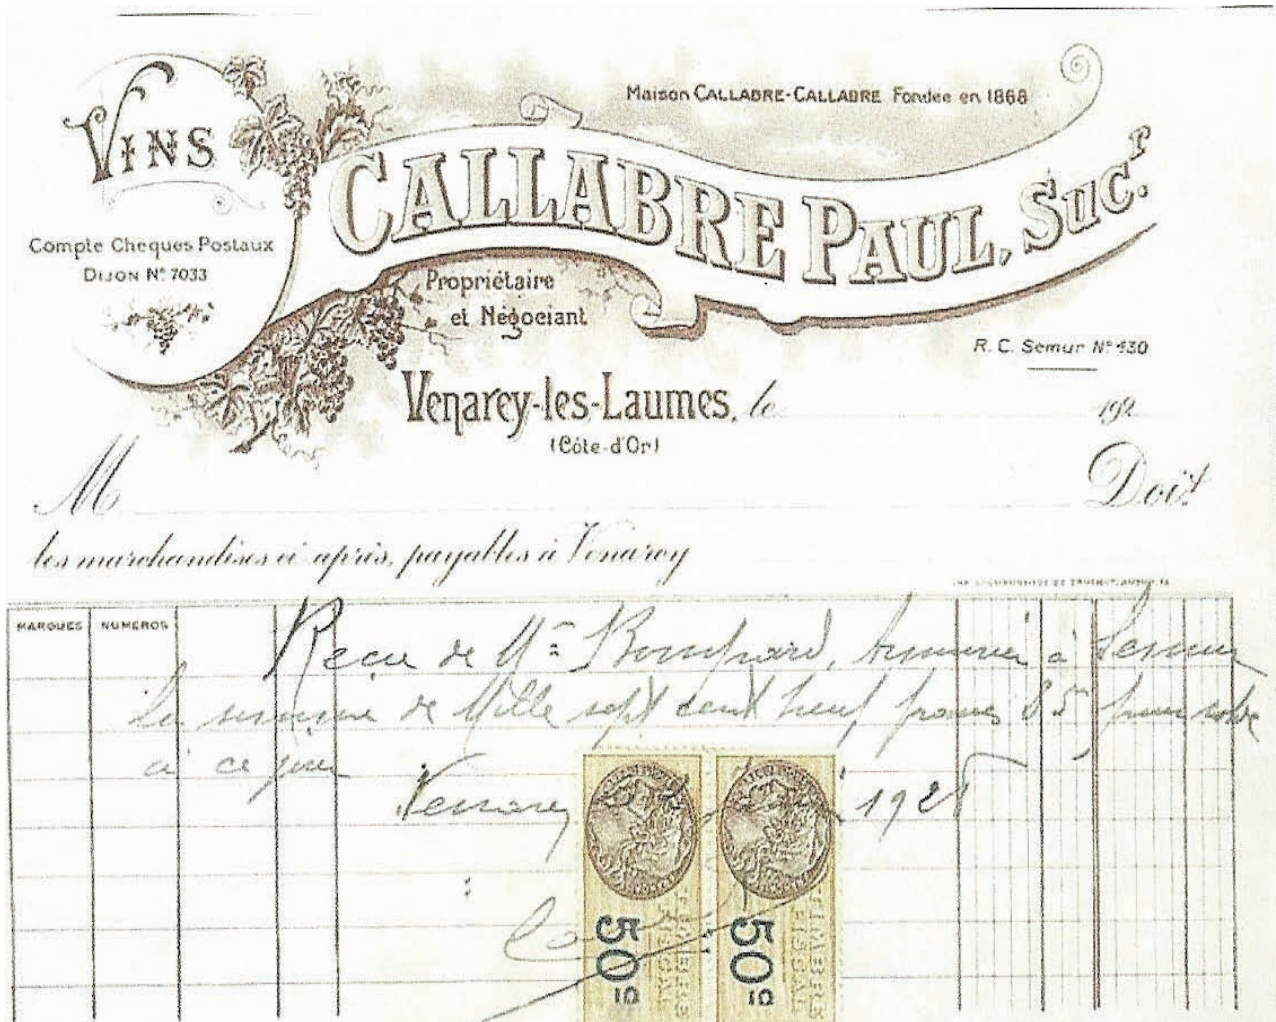 Maison CALLABRE-CALLABRE Fondée en 1868
VINS
CALLABRE PAUL, SUC.r
Compte Chèques Postaux
DIJON Nº 7033
Propriétaire
et Négociant
R. C. Semur Nº
Venarey-les-Laumes, le 192
(Côte-d'Or)
M Doit
les marchandises ci après, payables à Venarey
MARQUES NUMEROS
Reçu de Mr Bompard, à Semur
la somme de Mille sept cent neuf francs 85 pour solde
à ce jour
Venarey 192
50c 50c
TIMBRE FISCAL TIMBRE FISCAL